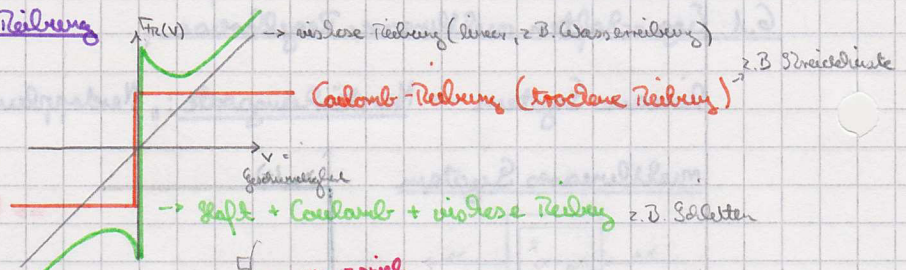 Reibung
FR(V)
→ viskose Reibung (linear, z.B. Wasserreibung)
Coulomb-Reibung (trockene Reibung)
→ z.B
V =
Geschwindigkeit
→ Haft + Coulomb + viskose Reibung z.B. Schlitten